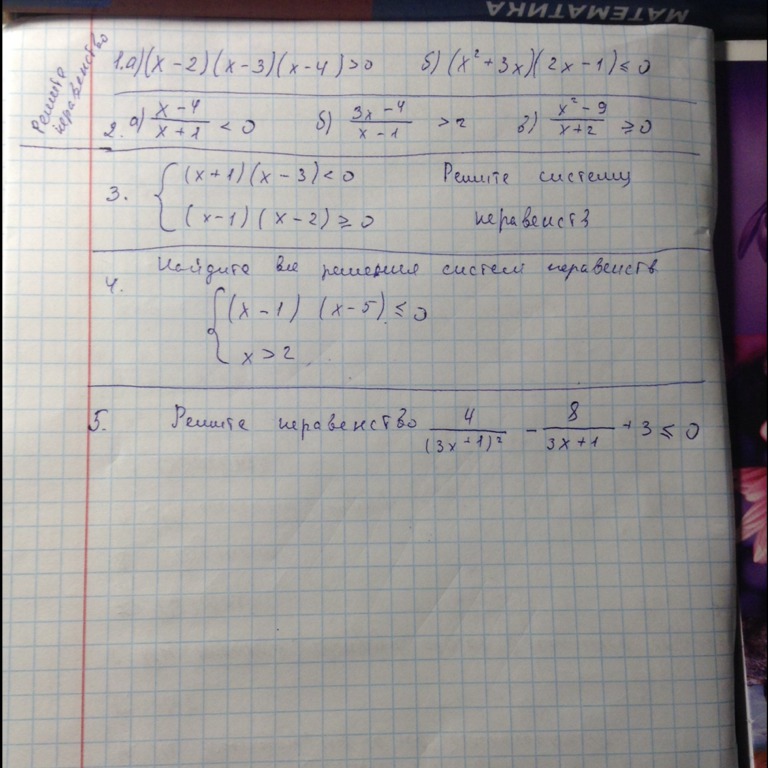 МАТЕМАТИКА
Решите неравенство
1. а) (x-2)(x-3)(x-4)>0 б) (x²+3x)(2x-1)≤0
2. а) (x-4)/(x+1) < 0 б) (3x-4)/(x-1) >2 в) (x²-9)/(x+2) ≥0
3. { (x+1)(x-3)<0 Решите систему
(x-1)(x-2)≥0 неравенств
4. Найдите все решения систем неравенств
{ (x-1) (x-5)≤0
x>2
5. Решите неравенство 4/(3x+1)² - 8/(3x+1) +3≤0